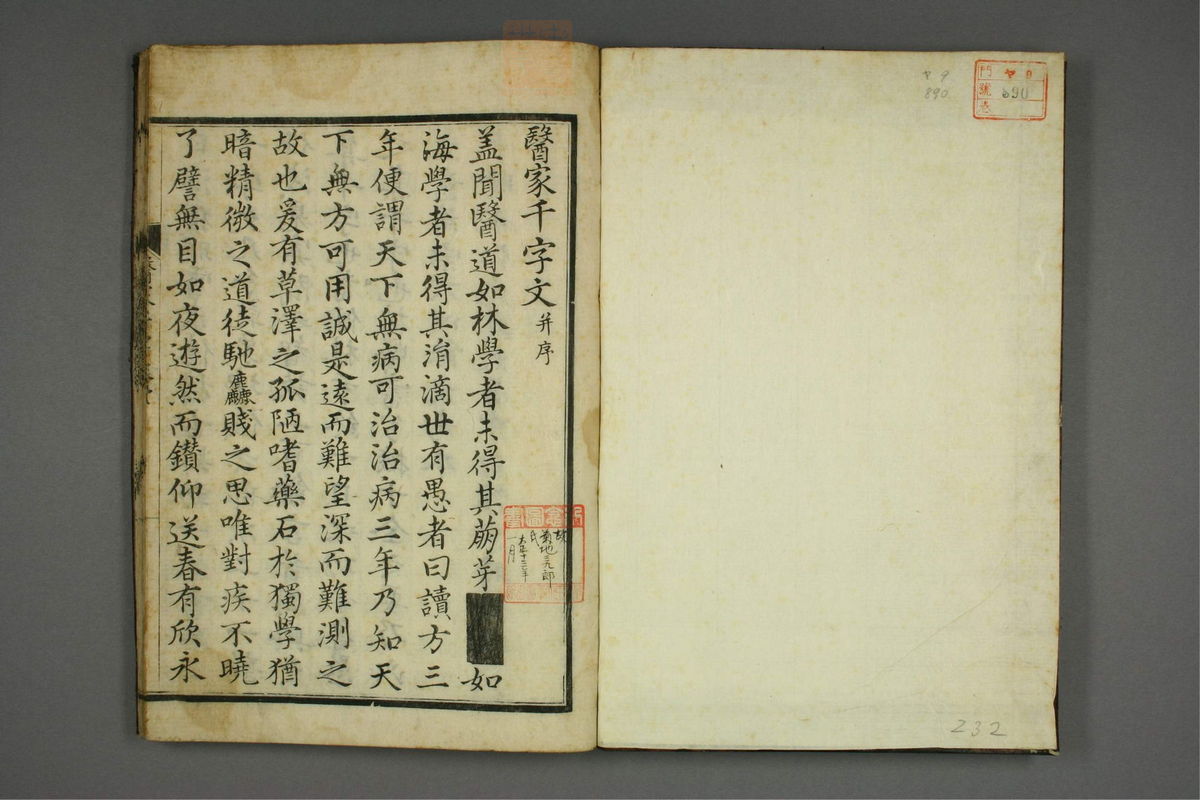 醫家千字文 并序
盖聞醫道如林學者未得其萠芽■如
海學者未得其涓滴世有愚者曰讀方三
年便謂天下無病可治治病三年乃知天
下無方可用誠是遠而難望深而難測之
故也爰有草澤之孤陋嗜藥石於獨學猶
暗精微之道徒馳麤賎之思唯對疾不曉
了譬無目如夜遊然而鑚仰送春有欣永
故
菊地三九郎
氏
大正十三年
一月
門
號
卷
ヤ9
890
ヤ9
890
232